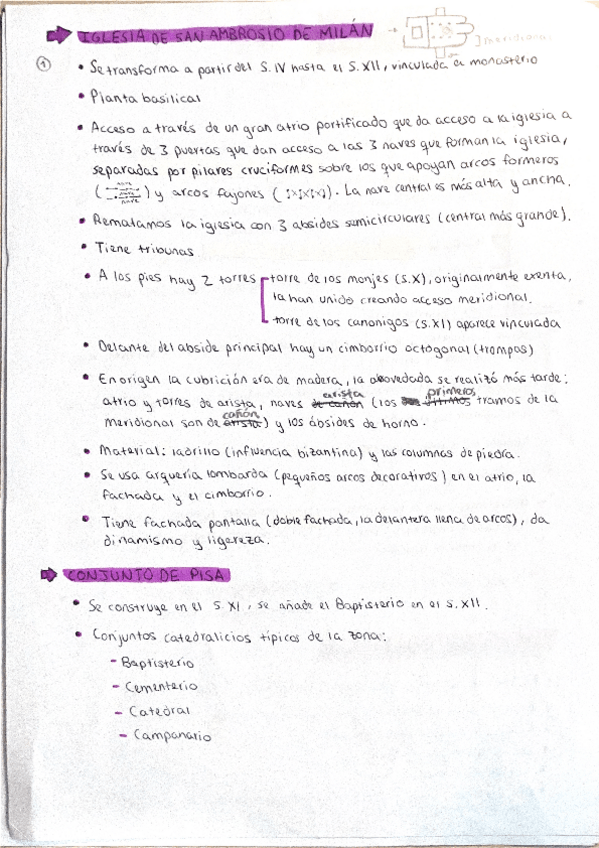 IGLESIA DE SAN AMBROSIO DE MILÁN
① • Se transforma a partir del S. IV hasta el S. XII, vinculada al monasterio
• Planta basilical
• Acceso a través de un gran atrio portificado que da acceso a la iglesia a
través de 3 puertas que dan acceso a las 3 naves que forman la iglesia,
separadas por pilares cruciformes sobre los que apoyan arcos formeros
( nave nave ) y arcos fajones ( ). La nave central es más alta y ancha.
• Rematamos la iglesia con 3 absides semicirculares (central más grande).
• Tiene tribunas
• A los pies hay 2 torres torre de los monjes (S. X), originalmente exenta,
la han unido creando acceso meridional.
torre de los canonigos (S. XI) aparece vinculada
• Delante del abside principal hay un cimborrio octogonal (trompas)
• En origen la cubrición era de madera, la abovedada se realizó más tarde:
atrio y torres de arista, naves de cañón arista (los últimos primeros tramos de la
meridional son de arista cañón) y los ábsides de horno.
• Material: ladrillo (influencia bizantina) y las columnas de piedra.
• Se usa arquería lombarda (pequeños arcos decorativos) en el atrio, la
fachada y el cimborrio.
• Tiene fachada pantalla (doble fachada, la delantera llena de arcos), da
dinamismo y ligereza.
CONJUNTO DE PISA
• Se construye en el S. XI, se añade el Baptisterio en el S. XII.
• Conjuntos catedralicios típicos de la zona:
- Baptisterio
- Cementerio
- Catedral
- Campanario